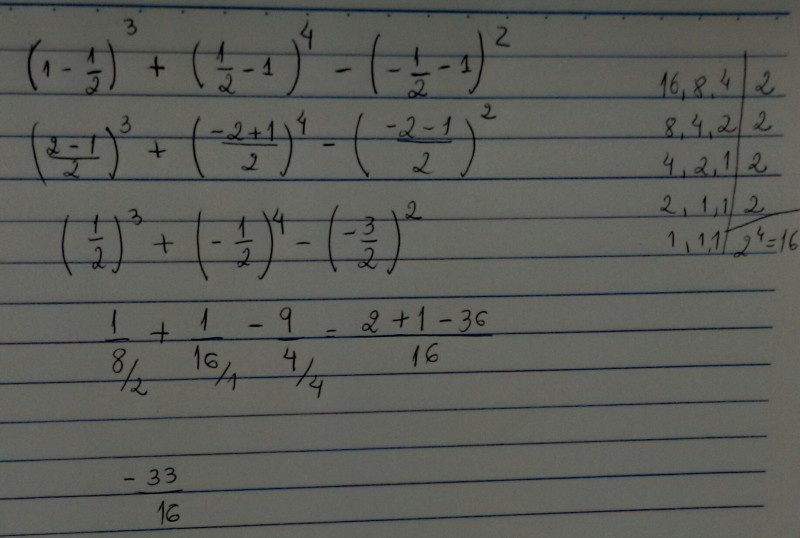 (1 - 1/2)^3 + (1/2 - 1)^4 - (-1/2 - 1)^2
((2 - 1)/2)^3 + ((-2 + 1)/2)^4 - ((-2 - 1)/2)^2
(1/2)^3 + (-1/2)^4 - (-3/2)^2
1/8/2 + 1/16/1 - 9/4/4 = (2 + 1 - 36)/16
-33/16
16, 8, 4 | 2
8, 4, 2 | 2
4, 2, 1 | 2
2, 1, 1 | 2
1, 1, 1 | 2^4 = 16